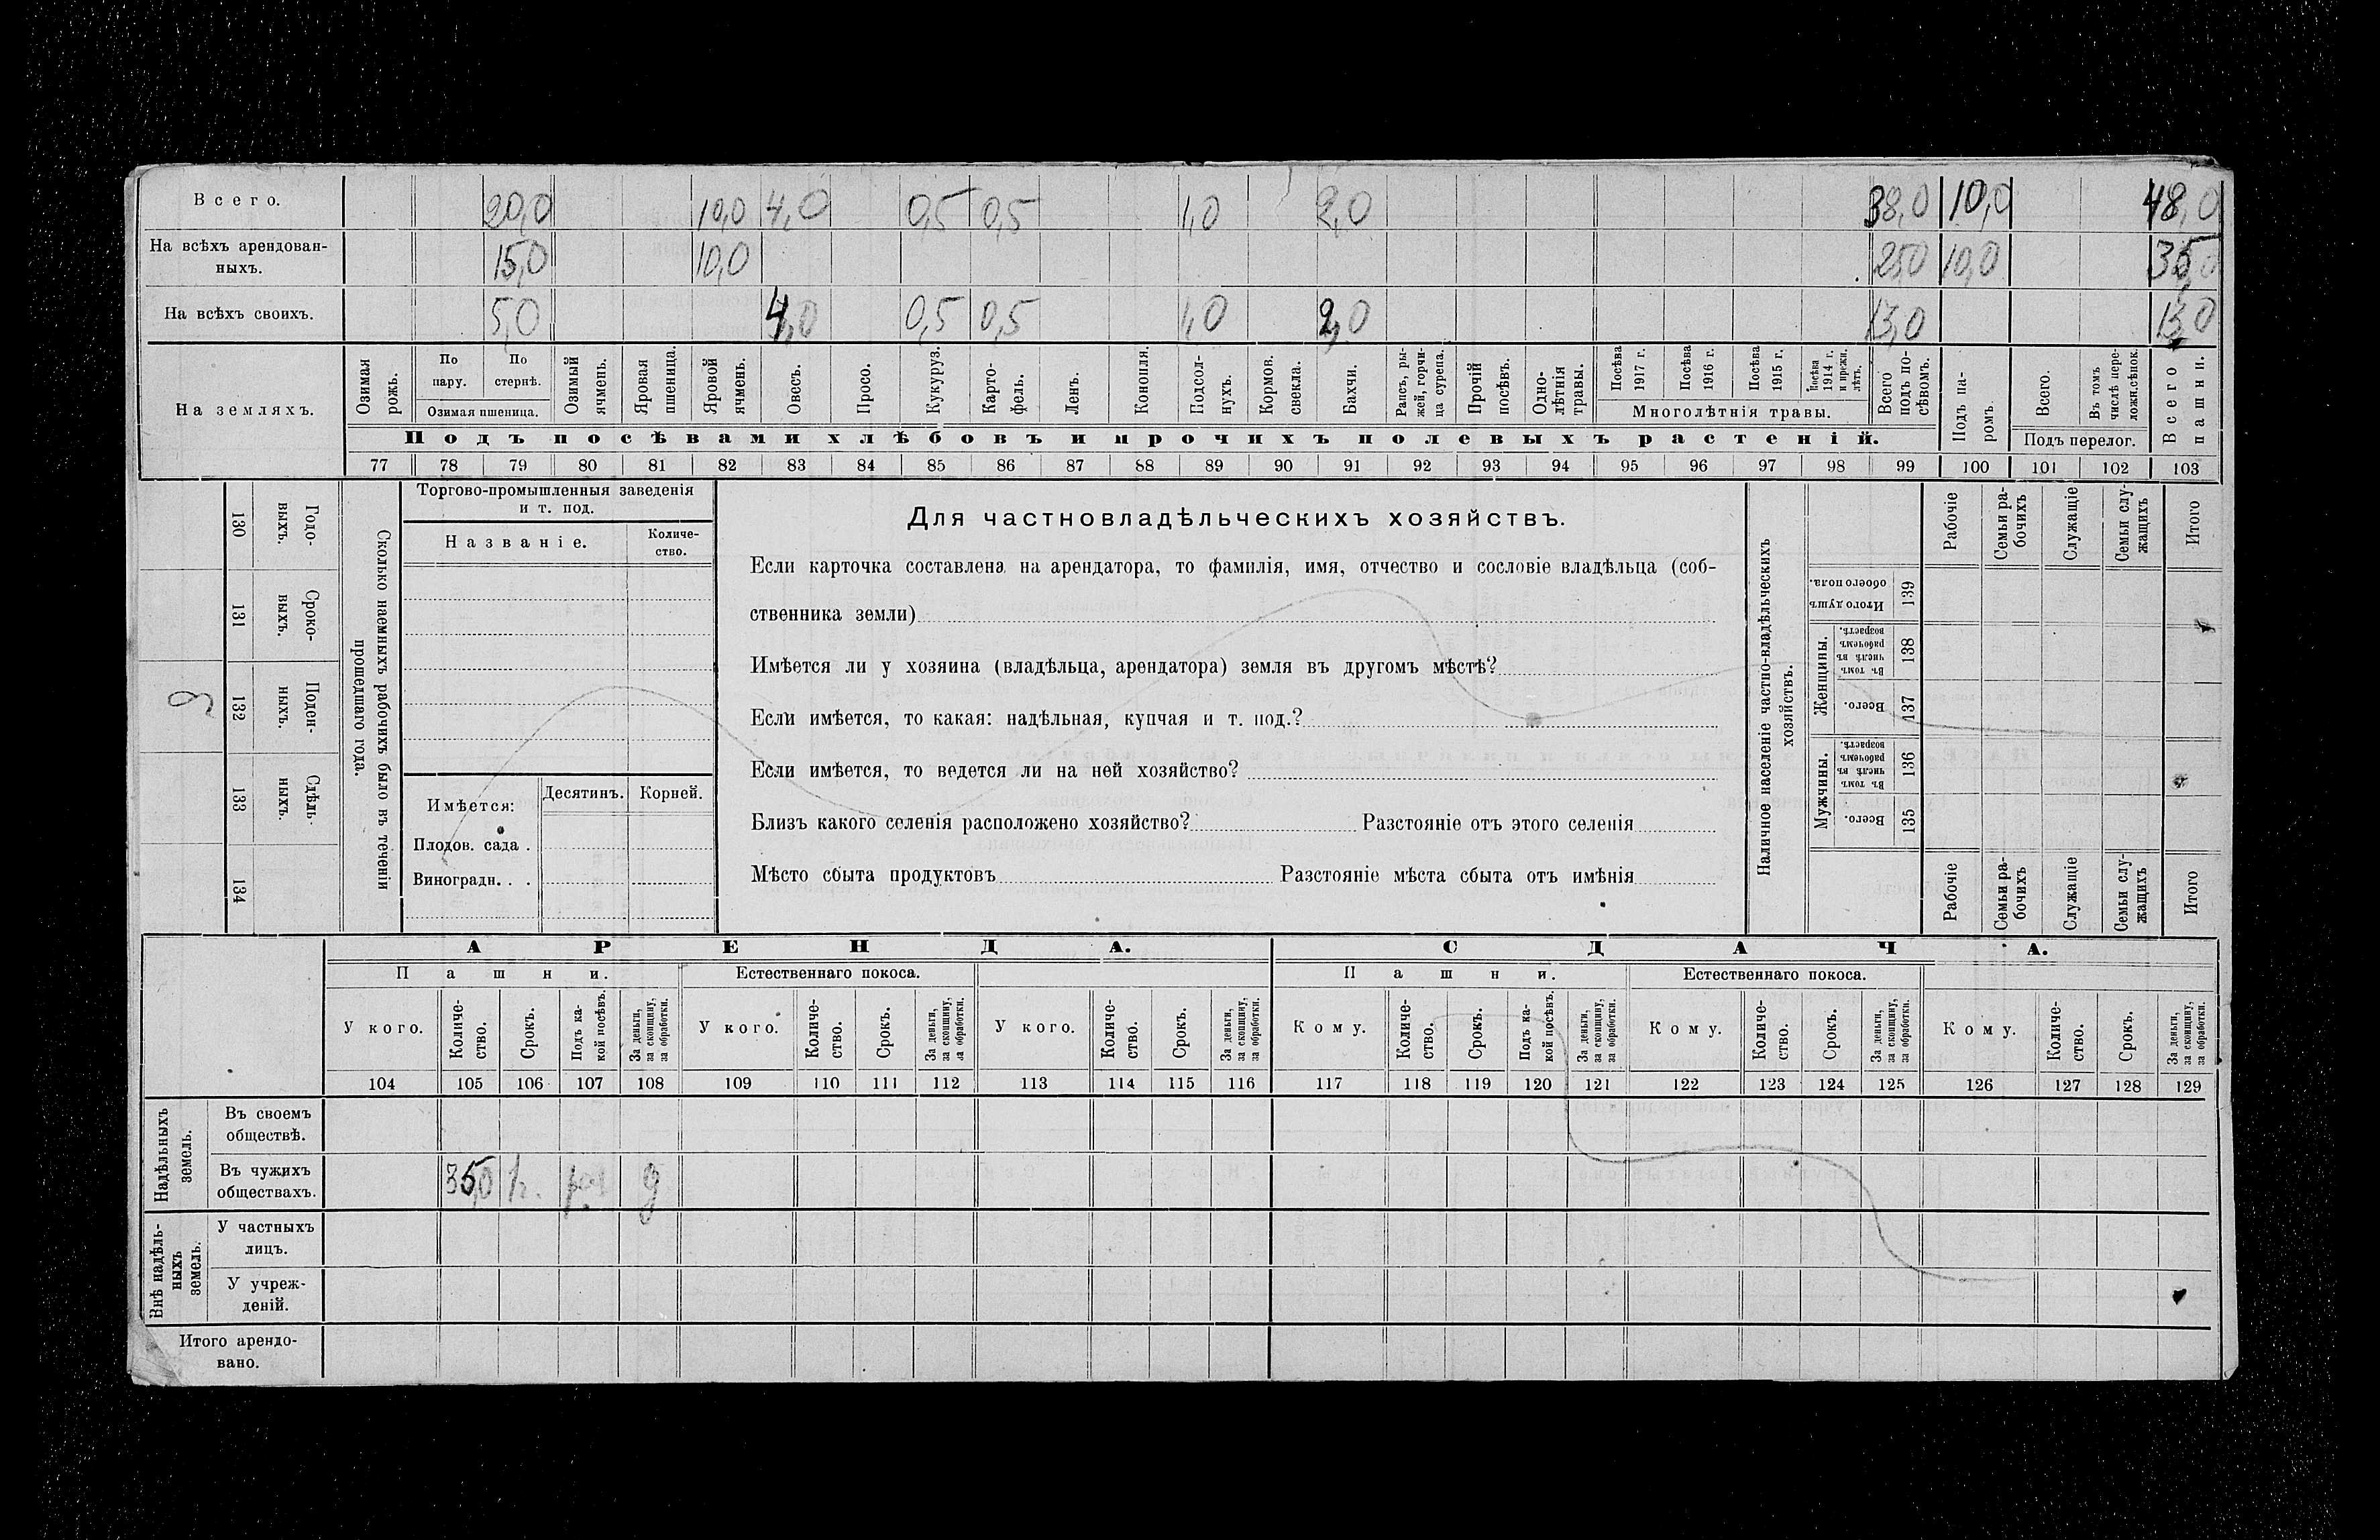 Всего. 20,0 10,0 4,0 0,5 0,5 1,0 2,0 38,0 10,0 48,0
На всѣхъ арендован-
ныхъ. 15,0 10,0 25,0 10,0 35,0
На всѣхъ своихъ. 5,0 4,0 0,5 0,5 1,0 2,0 13,0 13,0
На земляхъ.
Озимая рожь.
По пару.
По стернѣ.
Озимая пшеница.
Озимый ячмень.
Яровая пшеница.
Яровой ячмень.
Овесъ.
Просо.
Кукуруз.
Карто-
фель.
Ленъ.
Конопля.
Подсол-
нухъ.
Кормов. свекла.
Бахчи.
Рапсъ, ры-
жей, горчи-
ца сурепа.
Прочій посѣвъ.
Одно-
лѣтнія
травы.
Посѣва 1917 г.
Посѣва 1916 г.
Посѣва 1915 г.
Посѣва 1914 г. и прежн. лѣтъ.
Многолѣтнія травы.
Всего подъ по-
сѣвомъ.
Подъ па-
ромъ.
Всего.
Въ томъ числѣ пере-
ложн.сѣнок.
Подъ перелог.
Всего пашни.
Подъ посѣвами хлѣбовъ и прочихъ полевыхъ растеній.
77 78 79 80 81 82 83 84 85 86 87 88 89 90 91 92 93 94 95 96 97 98 99 100 101 102 103
130 Годо-
выхъ.
131 Сроко-
выхъ.
132 Поден-
ныхъ.
133 Сдѣль-
ныхъ.
134
Сколько наемныхъ рабочихъ было въ теченіи
прошедшаго года.
Торгово-промышленныя заведенія
и т. под.
Названіе.
Количе-
ство.
Имѣется:
Десятинъ.
Корней.
Плодов. сада .
Виноградн. . .
Для частновладѣльческихъ хозяйствъ.
Если карточка составлена на арендатора, то фамилія, имя, отчество и сословіе владѣльца (соб-
ственника земли)
Имѣется ли у хозяина (владѣльца, арендатора) земля въ другомъ мѣстѣ?
Если имѣется, то какая: надѣльная, купчая и т. под.?
Если имѣется, то ведется ли на ней хозяйство?
Близъ какого селенія расположено хозяйство? Разстояніе отъ этого селенія
Мѣсто сбыта продуктовъ Разстояніе мѣста сбыта отъ имѣнія
Наличное населеніе частно-владѣльческихъ
хозяйствъ.
Рабочіе
Семьи ра-
бочихъ
Служащіе
Семьи слу-
жащихъ
Итого
Итого душъ обоего пола. 139
Женщины.
Въ томъ числѣ въ рабочемъ возрастѣ. 138
Всего. 137
Мужчины.
Въ томъ числѣ въ рабочемъ возрастѣ. 136
Всего. 135
Рабочіе
Семьи ра-
бочихъ
Служащіе
Семьи слу-
жащихъ
Итого
АРЕНДА. СДАЧА.
Пашни. Естественнаго покоса. Пашни. Естественнаго покоса.
У кого.
Количе-
ство.
Срокъ.
Подъ ка-
кой посѣвъ.
За деньги,
за скопщину,
за обработки.
У кого.
Количе-
ство.
Срокъ.
За деньги,
за скопщину,
за обработки.
У кого.
Количе-
ство.
Срокъ.
За деньги,
за скопщину,
за обработки.
Кому.
Количе-
ство.
Срокъ.
Подъ ка-
кой посѣвъ.
За деньги,
за скопщину,
за обработки.
Кому.
Количе-
ство.
Срокъ.
За деньги,
за скопщину,
за обработки.
Кому.
Количе-
ство.
Срокъ.
За деньги,
за скопщину,
за обработки.
104 105 106 107 108 109 110 111 112 113 114 115 116 117 118 119 120 121 122 123 124 125 126 127 128 129
Надѣльныхъ
земель.
Въ своемъ
обществѣ.
Въ чужихъ
обществахъ. 35,0
Внѣ надѣль-
ныхъ
земель.
У частныхъ
лицъ.
У учреж-
деній.
Итого арендо-
вано.